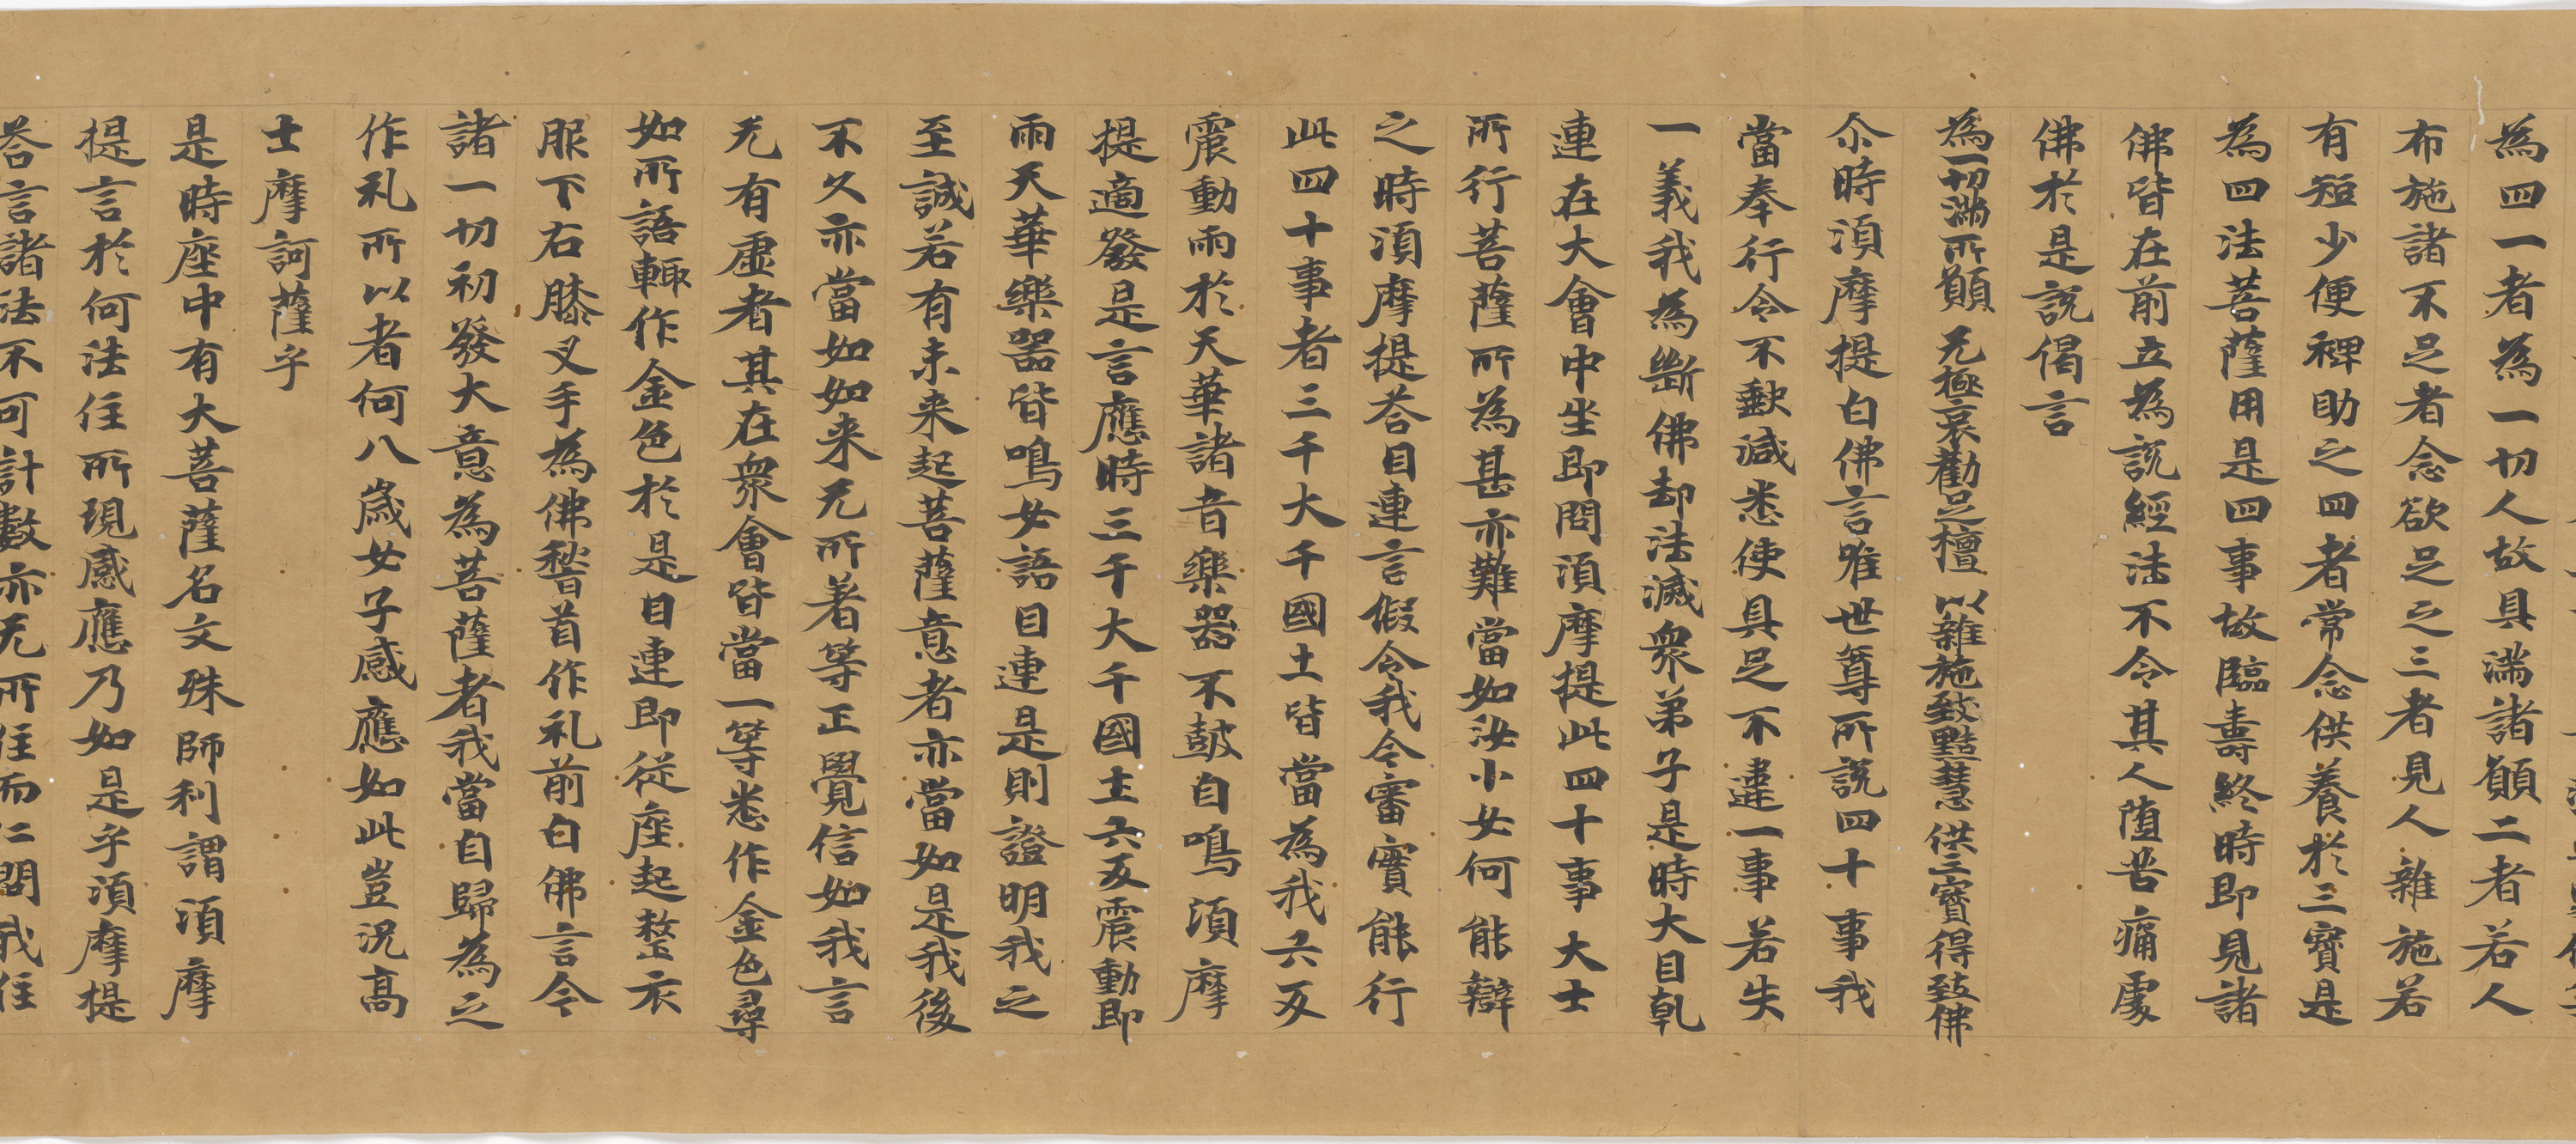 為四一者為一切人故具滿諸願二者若人
布施諸不足者念欲足之三者見人雜施若
有短少便裨助之四者常念供養於三寶是
為四法菩薩用是四事故臨壽終時即見諸
佛皆在前立為說經法不令其人墮苦痛處
佛於是說偈言
為一切滿所願 无極哀勸足檀 以雜施致黠慧 供三寶得致佛
尒時須摩提白佛言唯世尊所說四十事我
當奉行令不缺減悉使具足不違一事若失
一義我為斷佛却法滅衆弟子是時大目乹
連在大會中坐即問須摩提此四十事大士
所行菩薩所為甚亦難當如汝小女何能辯
之時須摩提荅目連言假令我今審實能行
此四十事者三千大千國土皆當為我六反
震動雨於天華諸音樂器不鼓自鳴須摩
提適發是言應時三千大千國土六反震動即
雨天華樂器皆鳴女語目連是則證明我之
至誠若有未来起菩薩意者亦當如是我後
不久亦當如如来无所着等正覺信如我言
无有虛者其在衆會皆當一等悉作金色尋
如所語輙作金色於是目連即從座起整衣
服下右膝叉手為佛稽首作礼前白佛言今
諸一切初發大意為菩薩者我當自歸為之
作礼所以者何八歲女子感應如此豈況高
士摩訶薩乎
是時座中有大菩薩名文殊師利謂須摩
提言於何法住所現感應乃如是乎須摩提
荅言諸法不可計數亦无所住而仁問我住